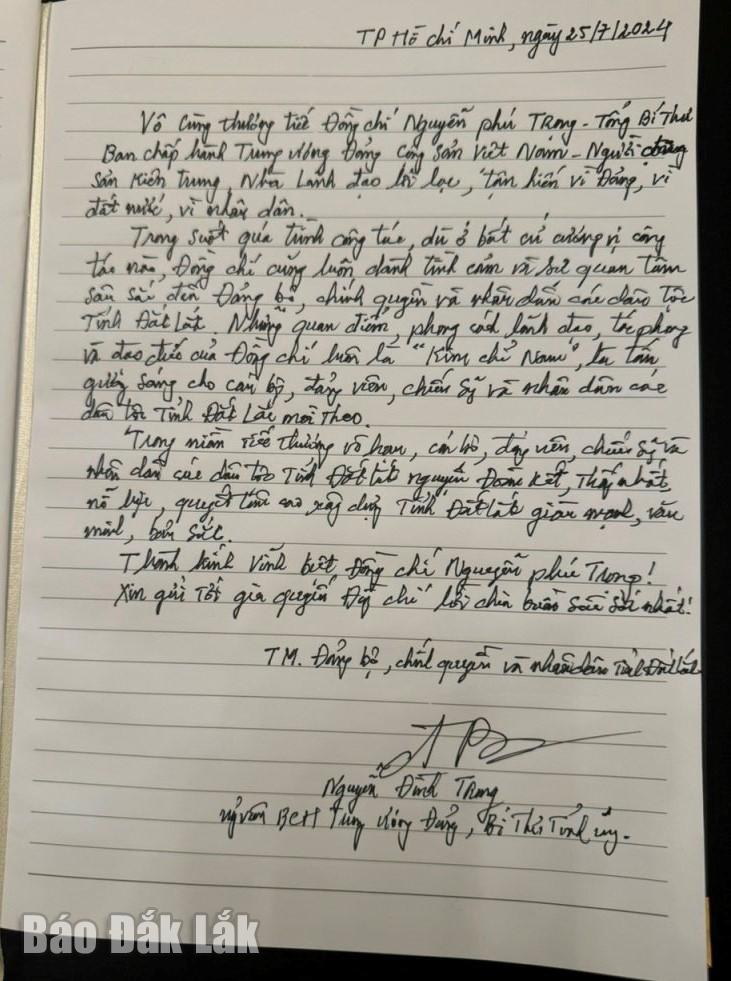 TP Hồ Chí Minh, ngày 25/7/2024
Vô cùng thương tiếc Đồng chí Nguyễn Phú Trọng - Tổng Bí Thư
Ban chấp hành Trung ương Đảng Cộng Sản Việt Nam - Người cộng
sản kiên trung, Nhà Lãnh đạo lỗi lạc, tận hiến vì Đảng, vì
đất nước, vì nhân dân.
Trong suốt quá trình công tác, dù ở bất cứ cương vị công
tác nào, Đồng chí cũng luôn dành tình cảm và sự quan tâm
sâu sắc đến Đảng bộ, chính quyền và nhân dân các dân tộc
Tỉnh Đắk Lắk. Những quan điểm, phong cách lãnh đạo, tác phong
và đạo đức của Đồng chí luôn là "Kim chỉ Nam", là tấm
gương sáng cho cán bộ, đảng viên, chiến sỹ và nhân dân các
dân tộc Tỉnh Đắk Lắk noi theo.
Trong niềm tiếc thương vô hạn, cán bộ, đảng viên, chiến sỹ và
nhân dân các dân tộc Tỉnh Đắk Lắk nguyện Đoàn kết, Thống nhất,
nỗ lực, quyết tâm cao xây dựng Tỉnh Đắk Lắk giàu mạnh, văn
minh, bản sắc.
Thành kính vĩnh biệt Đồng chí Nguyễn Phú Trọng!
Xin gửi tới gia quyến Đồng chí lời chia buồn sâu sắc nhất!
TM. Đảng bộ, chính quyền và nhân dân Tỉnh Đắk Lắk
Nguyễn Đình Trung
Ủy viên BCH Trung ương Đảng, Bí Thư Tỉnh ủy.
Báo Đắk Lắk